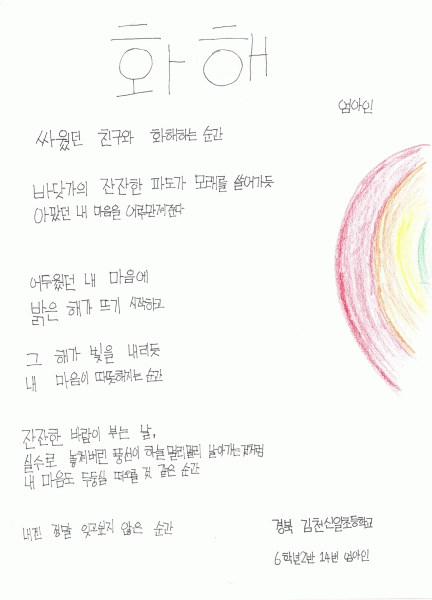 화해
엄아인
싸웠던 친구와 화해하는 순간
바닷가의 잔잔한 파도가 모래를 쓸어가듯
아팠던 내 마음을 어루만져준다
어두웠던 내 마음에
밝은 해가 뜨기 시작하고
그 해가 빛을 내리듯
내 마음이 따뜻해지는 순간
잔잔한 바람이 부는 날,
실수로 놓쳐버린 풍선이 하늘 멀리멀리 날아가는것처럼
내 마음도 두둥실 떠오를 것 같은 순간
내진 정말 잊고싶지 않은 순간
경북 김천신일초등학교
6학년2반 14번 엄아인